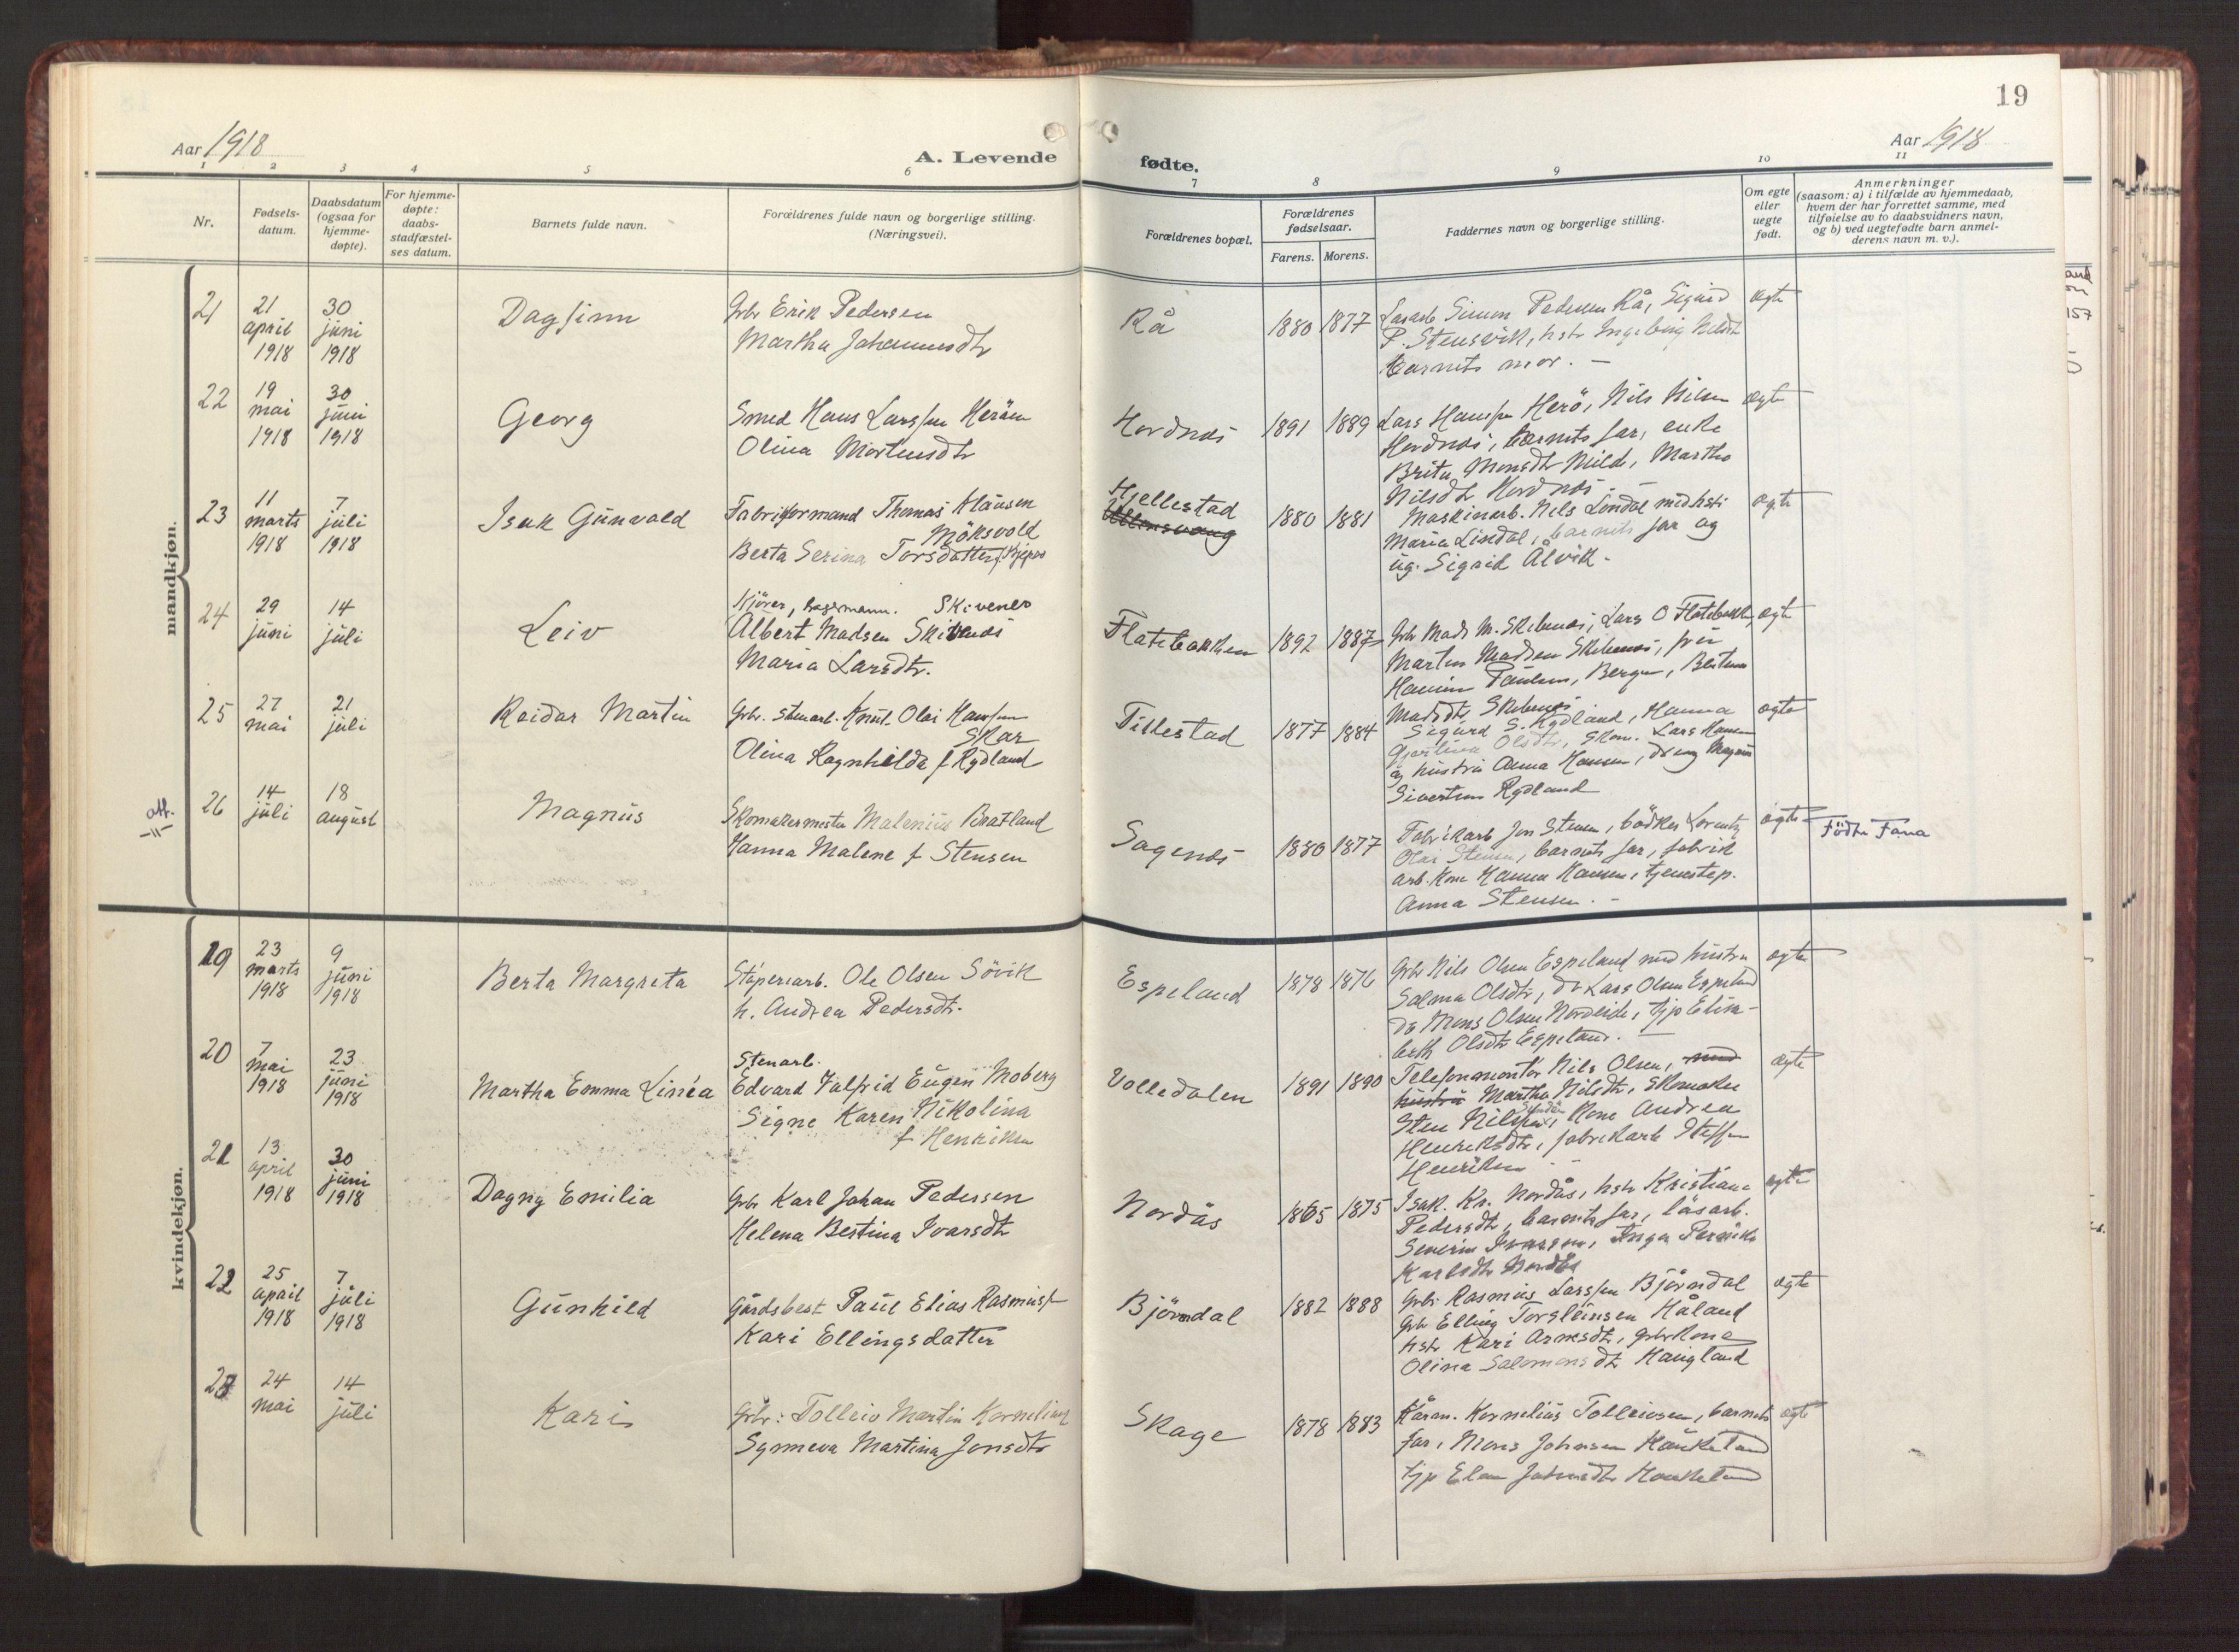 19
Aar 1918
A. Levende
fødte.
Aar 1918
1 2 3 4 5 6 7 8 9 10 11
Nr.
Fødsels-
datum.
Daabsdatum
(ogsaa for
hjemme-
døpte).
For hjemme-
døpte:
daabs-
stadfæstel-
ses datum.
Barnets fulde navn.
Forældrenes fulde navn og borgerlige stilling.
(Næringsvei).
Forældrenes bopæl.
Forældrenes
fødselsaar.
Farens. Morens.
Faddernes navn og borgerlige stilling.
Om egte
eller
uegte
født.
Anmerkninger
(saasom: a) i tilfælde av hjemmedaab,
hvem der har forrettet samme, med
tilføielse av to daabsvidners navn,
og b) ved uegtefødte barn anmel-
derens navn m. v.).
mandkjøn.
21
21
april
1918
30
juni
1918
Dagfinn
Grbr Erik Pedersen
Martha Johannesdtr
Rå
1880 1877
Simon Pedersen Rå, Sigurd
P. Stensvik, hstr Ingeborg
barnets mor. —
ægte
22
19
mai
1918
30
juni
1918
Georg
Smed Hans Larssen Herøen
Olina Mortensdtr
Hordnæs
1891 1889
Lars Hanssen Herö, Nils Nilsen
Hordnæs, barnets far, enke
Brita Monsdtr Milde, Martha
Nilsdtr Hordnæs. —
ægte
23
11
marts
1918
7
juli
1918
Isak Gunvald
Fabrikformand Thomas Klausen
Möksvold
Berta Serina Torsdatter f.
Hjellestad
Ullensvang
1880 1881
Maskinarb. Nels Lindal med hst:
Maria Lindal, barnets far og
ug. Sigrid Ålvik.
ægte
24
29
juni
14
juli
Leiv
Kjörer, lagermann. Skivenes
Albert Madsen Skivenæs
Maria Larsdtr.
Flatebakken
1892 1887
Grbr Mads M. Skibenæs, Lars O Flatebakken,
Martin Madsen Skibenæs, frü
Paulsen, Bergen, Bertine
Madsdtr Skibenæs
ægte
25
27
mai
21
juli
Reidar Martin
Grbr. stenarb. Knut Olai Hanssen
Skar
Olina Ragnhilda f Rydland
Tillestad
1877 1884
Sigurd S. Rydland, Hanna
Gjertine Olsdtr, Skom. Lars Hansen
og hustru Anna Hansen, dreng Magnus
Sivertsen Rydland
ægte
att.
26
14
juli
18
august
Magnus
Skomakermester Malenius Bratland
Hanna Malene f Stensen
Sagenæs
1880 1877
Fabrikarb Jon Stensen, bödker Lorentz
Olai Stensen, barnets far, fabrik
arb. kone Hanna Hansen, tjenestep.
Anna Stensen. —
ægte
Födt i Fana
kvindekjøn.
19
23
marts
1918
9
juni
1918
Berta Margreta
Stöperiarb. Ole Olsen Sövik
h. Andrea Pedersdtr.
Espeland
1878 1876
Grbr Nils Olsen Espeland med hustru
Salma Olsdtr, do Lars Olsen Espeland
do Mons Olsen Nordeide, tjp Elisa-
beth Olsdtr Espeland. —
ægte
20
7
mai
1918
23
juni
1918
Martha Emma Linéa
Stenarb.
Edvard Valfrid Eugen Moberg
Signe Karen Nikolina
f Henriksen
Volledalen
1891 1890
Telefonmontör Nils Olsen, med
hustru Martha Nilsdtr, Skomaker
Sten Nilssen, kone Andrea
Henriksdtr, fabrikarb Steffen
Henriksen
ægte
21
13
april
1918
30
juni
1918
Dagny Emilia
Grbr Karl Johan Pedersen
Helena Bertina Ivarsdtr
Nordås
1865 1875
Isak Kr. Nordås, hstr Kristiane
Pedersdtr, barnets far, lösarb.
Severin Ivarsen, Inga
Karlsdtr Nordås
ægte
22
25
april
1918
7
juli
1918
Gunhild
Gårdsbest Paul Elias Rasmuss
Kari Ellingsdatter
Björndal
1882 1888
Grbr Rasmus Larssen Björndal
Grbr Elling Torsteinsen Håland
hstr Kari Arnesdtr, grbrkone
Olina Salomonsdtr Haugland
ægte
23
24
mai
14
juli
Kari
Grbr: Tolleiv Martin Korneliuss
Synneva Martina Jonsdtr
Skage
1878 1883
Kåran. Kornelius Tolleivsen, barnets
far, Mons Johnsen Haukeland
tjp Elen Johnsdtr Haukeland
ægte